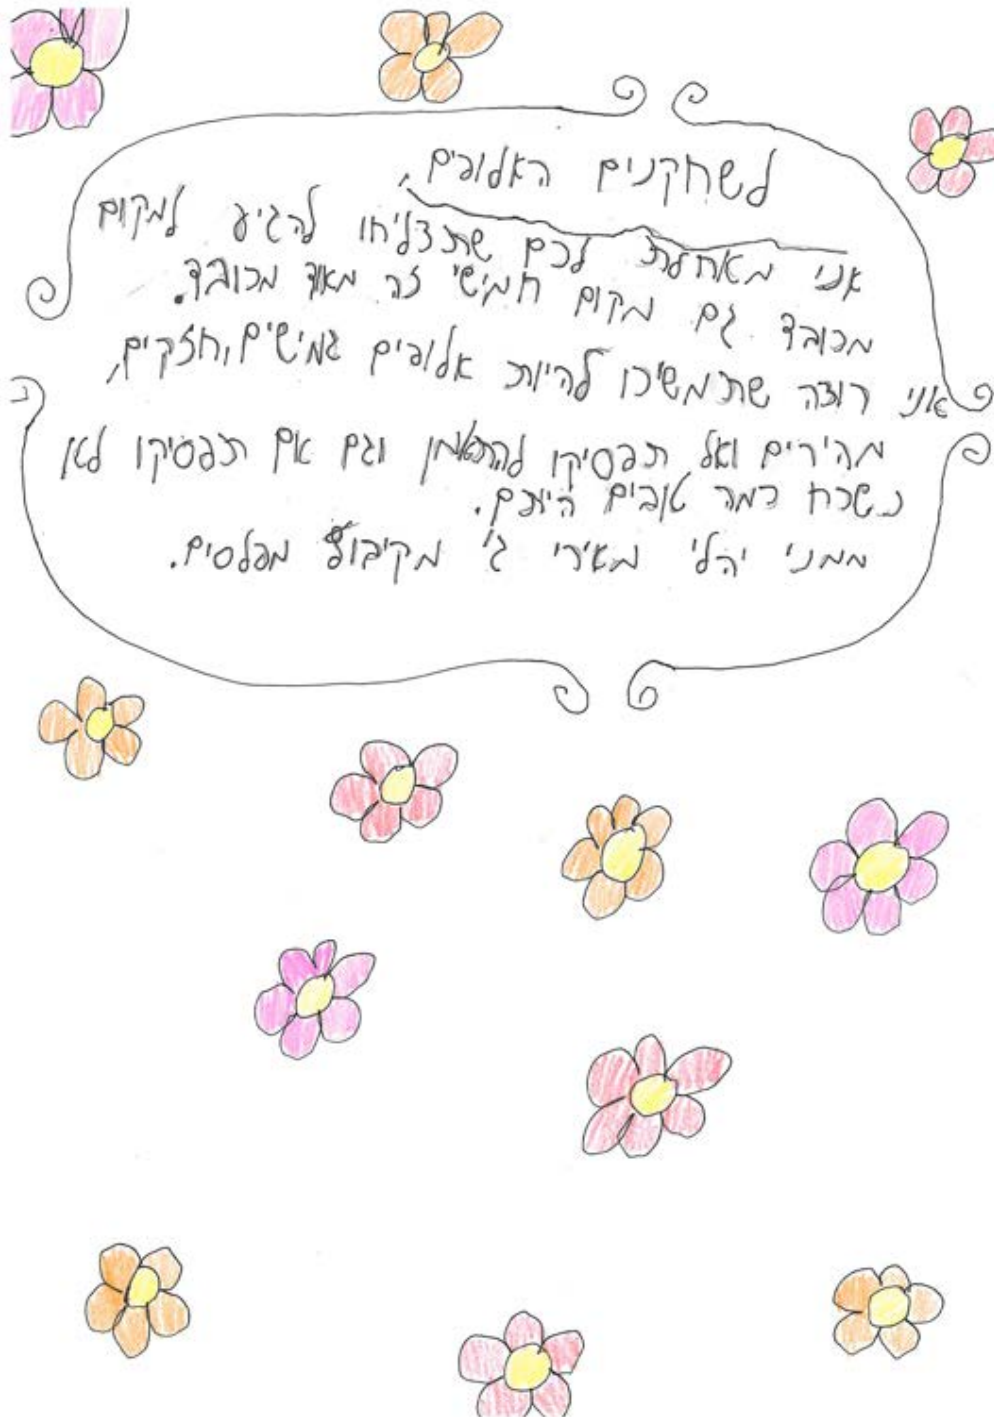 לשחקנים האלופים,
אני מאחלת לכם שתצליחו להגיע למקום
מכובד גם מקום חמישי זה מאוד מכובד.
אני רוצה שתמשיכו להיות אלופים גמישים, חזקים,
מהירים ואל תפסיקו להתאמן וגם אם תפסיקו לא
נשכח כמה טובים הייתם.
ממני יהלי משירי ג' מקיבוץ מפלסים.